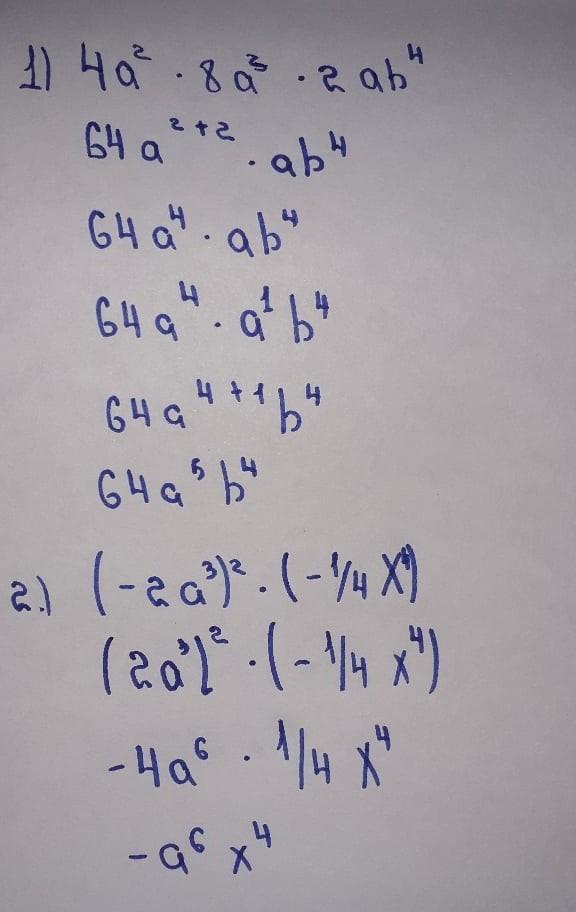 1) 4a² · 8a² · 2ab⁴
64a²⁺² · ab⁴
64a⁴ · ab⁴
64a⁴ · a¹b⁴
64a⁴⁺¹b⁴
64a⁵b⁴
2.) (-2a³)² · (-1/4 X⁴)
(2a³)² · (-1/4 x⁴)
-4a⁶ · 1/4 x⁴
-a⁶ x⁴